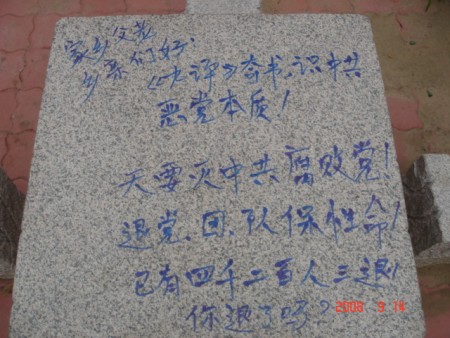 家乡父老
乡亲们好:
《九评》奇书,识中共
恶党本质!
天要灭中共腐败党!
退党、团、队保性命!
已有四千二百人三退!
你退了吗?
2008 9 16